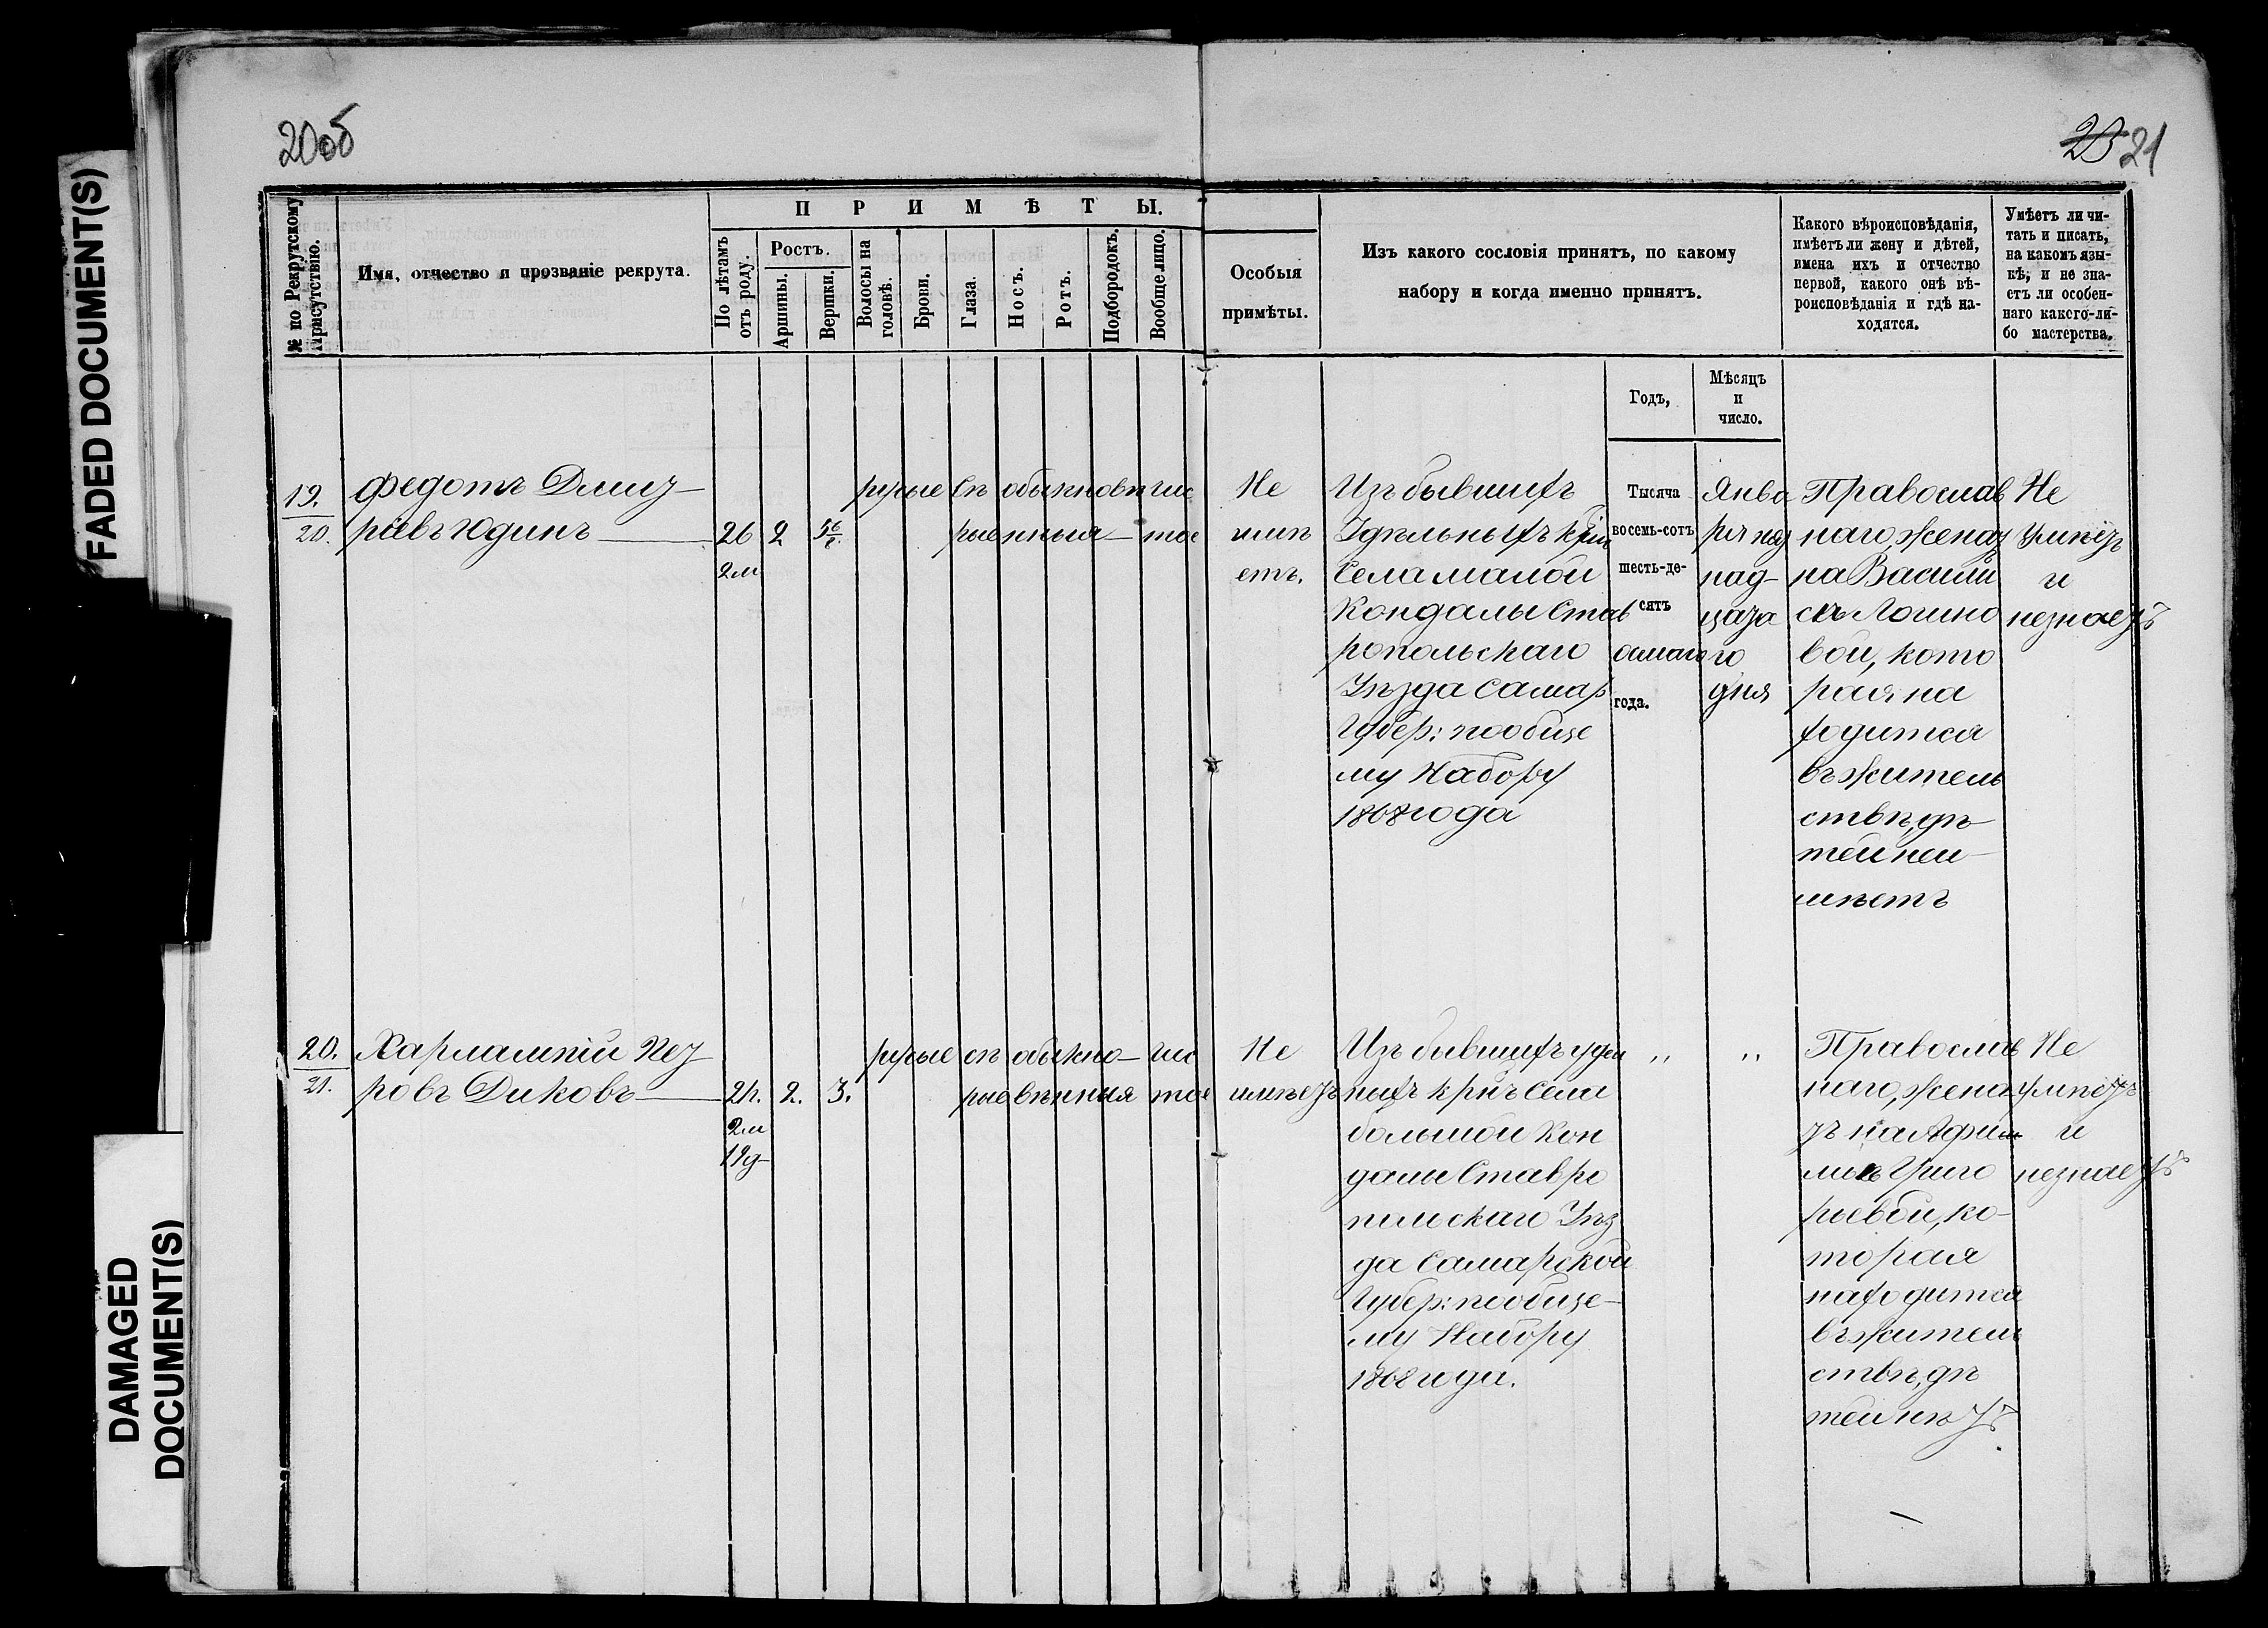 20об
23 21
FADED DOCUMENT(S)
DAMAGED
DOCUMENT(S)
№ по Рекрутскому
Присутствію.
Имя, отчество и прозваніе рекрута.
ПРИМѢТЫ.
По лѣтамъ
отъ роду.
Ростъ.
Аршины.
Вершки.
Волосы на
головѣ.
Брови.
Глаза.
Носъ.
Ротъ.
Подбородокъ.
Вообще лицо.
Особыя
примѣты.
Изъ какого сословія принятъ, по какому
набору и когда именно принятъ.
Какого вѣроисповѣданія,
имѣетъ ли жену и дѣтей,
имена ихъ и отчество
первой, какого онѣ вѣ-
роисповѣданія и гдѣ на-
ходятся.
Умѣетъ ли чи-
тать и писать,
на какомъ язы-
кѣ, и не зна-
етъ ли особен-
наго какого-ли-
бо мастерства.
Годъ,
Мѣсяцъ
и
число.
19.
20.
Федотъ Дмит-
ріевъ Юдинъ
26
2м
2
русые
сѣ
рые
обыкнове
нныя
чис
тое
Не
имѣ
етъ.
Изъ бывшихъ
Удѣльныхъ крн
села малой
Кондалы Став
ропольскаго
Уѣзда Самар
Губер: по обще
му Набору
1868 года
Тысяча
восемь-сотъ
шесть-де-
сятъ
осмаго
года.
Янва
ря пят
над-
цата
го
дня
Православ
наго, женат
на Василі
сѣ Логино
вой, кото
рая на
ходится
въ житель
ствѣ, дѣ
тей неи-
мѣетъ
Не
умѣетъ
и
незнаетъ
20.
21.
Харлампій Пет
ровъ Диковъ
2м
19д
2.
3.
русые
сѣ
рые
обыкно-
вѣнныя
чис
тое
Не
имѣетъ
Изъ бывшихъ удѣл
ныхъ крнъ села
большой Кон
далы Ставро
польскаго Уѣз
да Самарской
Губер: по обще-
му Набору
1868 года.
" "
Православ
наго, жена
тъ на Афи
мьѣ Григо
рьевой, ко-
торая
находится
въ житель
ствѣ, дѣ
тей нѣтъ
Не
умѣетъ
и
незнаетъ